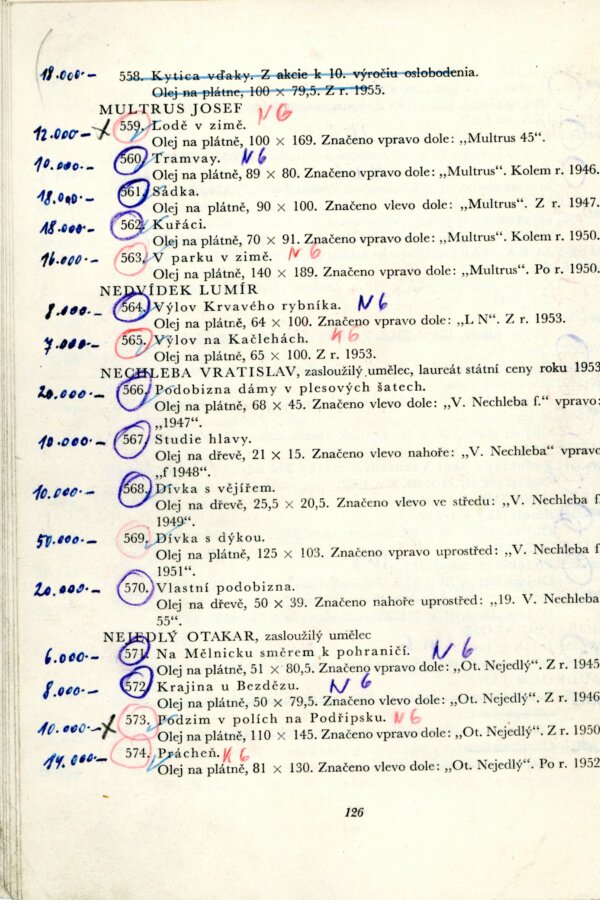 18.000.– 558. Kytica vďaky. Z akcie k 10. výročiu oslobodenia.
Olej na plátne, 100 × 79,5. Z r. 1955.
MULTRUS JOSEF N6
12.000.– X 559. Lodě v zimě.
Olej na plátně, 100 × 169. Značeno vpravo dole: „Multrus 45“.
10.000.– 560. Tramvay. N6
Olej na plátně, 89 × 80. Značeno vpravo dole: „Multrus“. Kolem r. 1946.
18.000.– 561. Sádka.
Olej na plátně, 90 × 100. Značeno vlevo dole: „Multrus“. Z r. 1947.
18.000.– 562. Kuřáci.
Olej na plátně, 70 × 91. Značeno vpravo dole: „Multrus“. Kolem r. 1950.
16.000.– 563. V parku v zimě. N6
Olej na plátně, 140 × 189. Značeno vpravo dole: „Multrus“. Po r. 1950.
NEDVÍDEK LUMÍR
8.000.– 564. Výlov Krvavého rybníka. N6
Olej na plátně, 64 × 100. Značeno vpravo dole: „L N“. Z r. 1953.
7.000.– 565. Výlov na Kačlehách. K6
Olej na plátně, 65 × 100. Z r. 1953.
NECHLEBA VRATISLAV, zasloužilý umělec, laureát státní ceny roku 1953
20.000.– 566. Podobizna dámy v plesových šatech.
Olej na plátně, 68 × 45. Značeno vlevo dole: „V. Nechleba f.“ vpravo:
„1947“.
10.000.– 567. Studie hlavy.
Olej na dřevě, 21 × 15. Značeno vlevo nahoře: „V. Nechleba“ vpravo
„f 1948“.
10.000.– 568. Dívka s vějířem.
Olej na dřevě, 25,5 × 20,5. Značeno vlevo ve středu: „V. Nechleba f.
1949“.
50.000.– 569. Dívka s dýkou.
Olej na plátně, 125 × 103. Značeno vpravo uprostřed: „V. Nechleba f.
1951“.
20.000.– 570. Vlastní podobizna.
Olej na dřevě, 50 × 39. Značeno nahoře uprostřed: „19. V. Nechleba
55“.
NEJEDLÝ OTAKAR, zasloužilý umělec
6.000.– 571. Na Mělnicku směrem k pohraničí. N6
Olej na plátně, 51 × 80,5. Značeno vpravo dole: „Ot. Nejedlý“. Z r. 1945
8.000.– 572. Krajina u Bezdězu. N6
Olej na plátně, 50 × 79,5. Značeno vlevo dole: „Ot. Nejedlý“. Z r. 1946
10.000.– X 573. Podzim v polích na Podřipsku. N6
Olej na plátně, 110 × 145. Značeno vpravo dole: „Ot. Nejedlý“. Z r. 1950
14.000.– 574. Prácheň. K6
Olej na plátně, 81 × 130. Značeno vlevo dole: „Ot. Nejedlý“. Po r. 1952
126